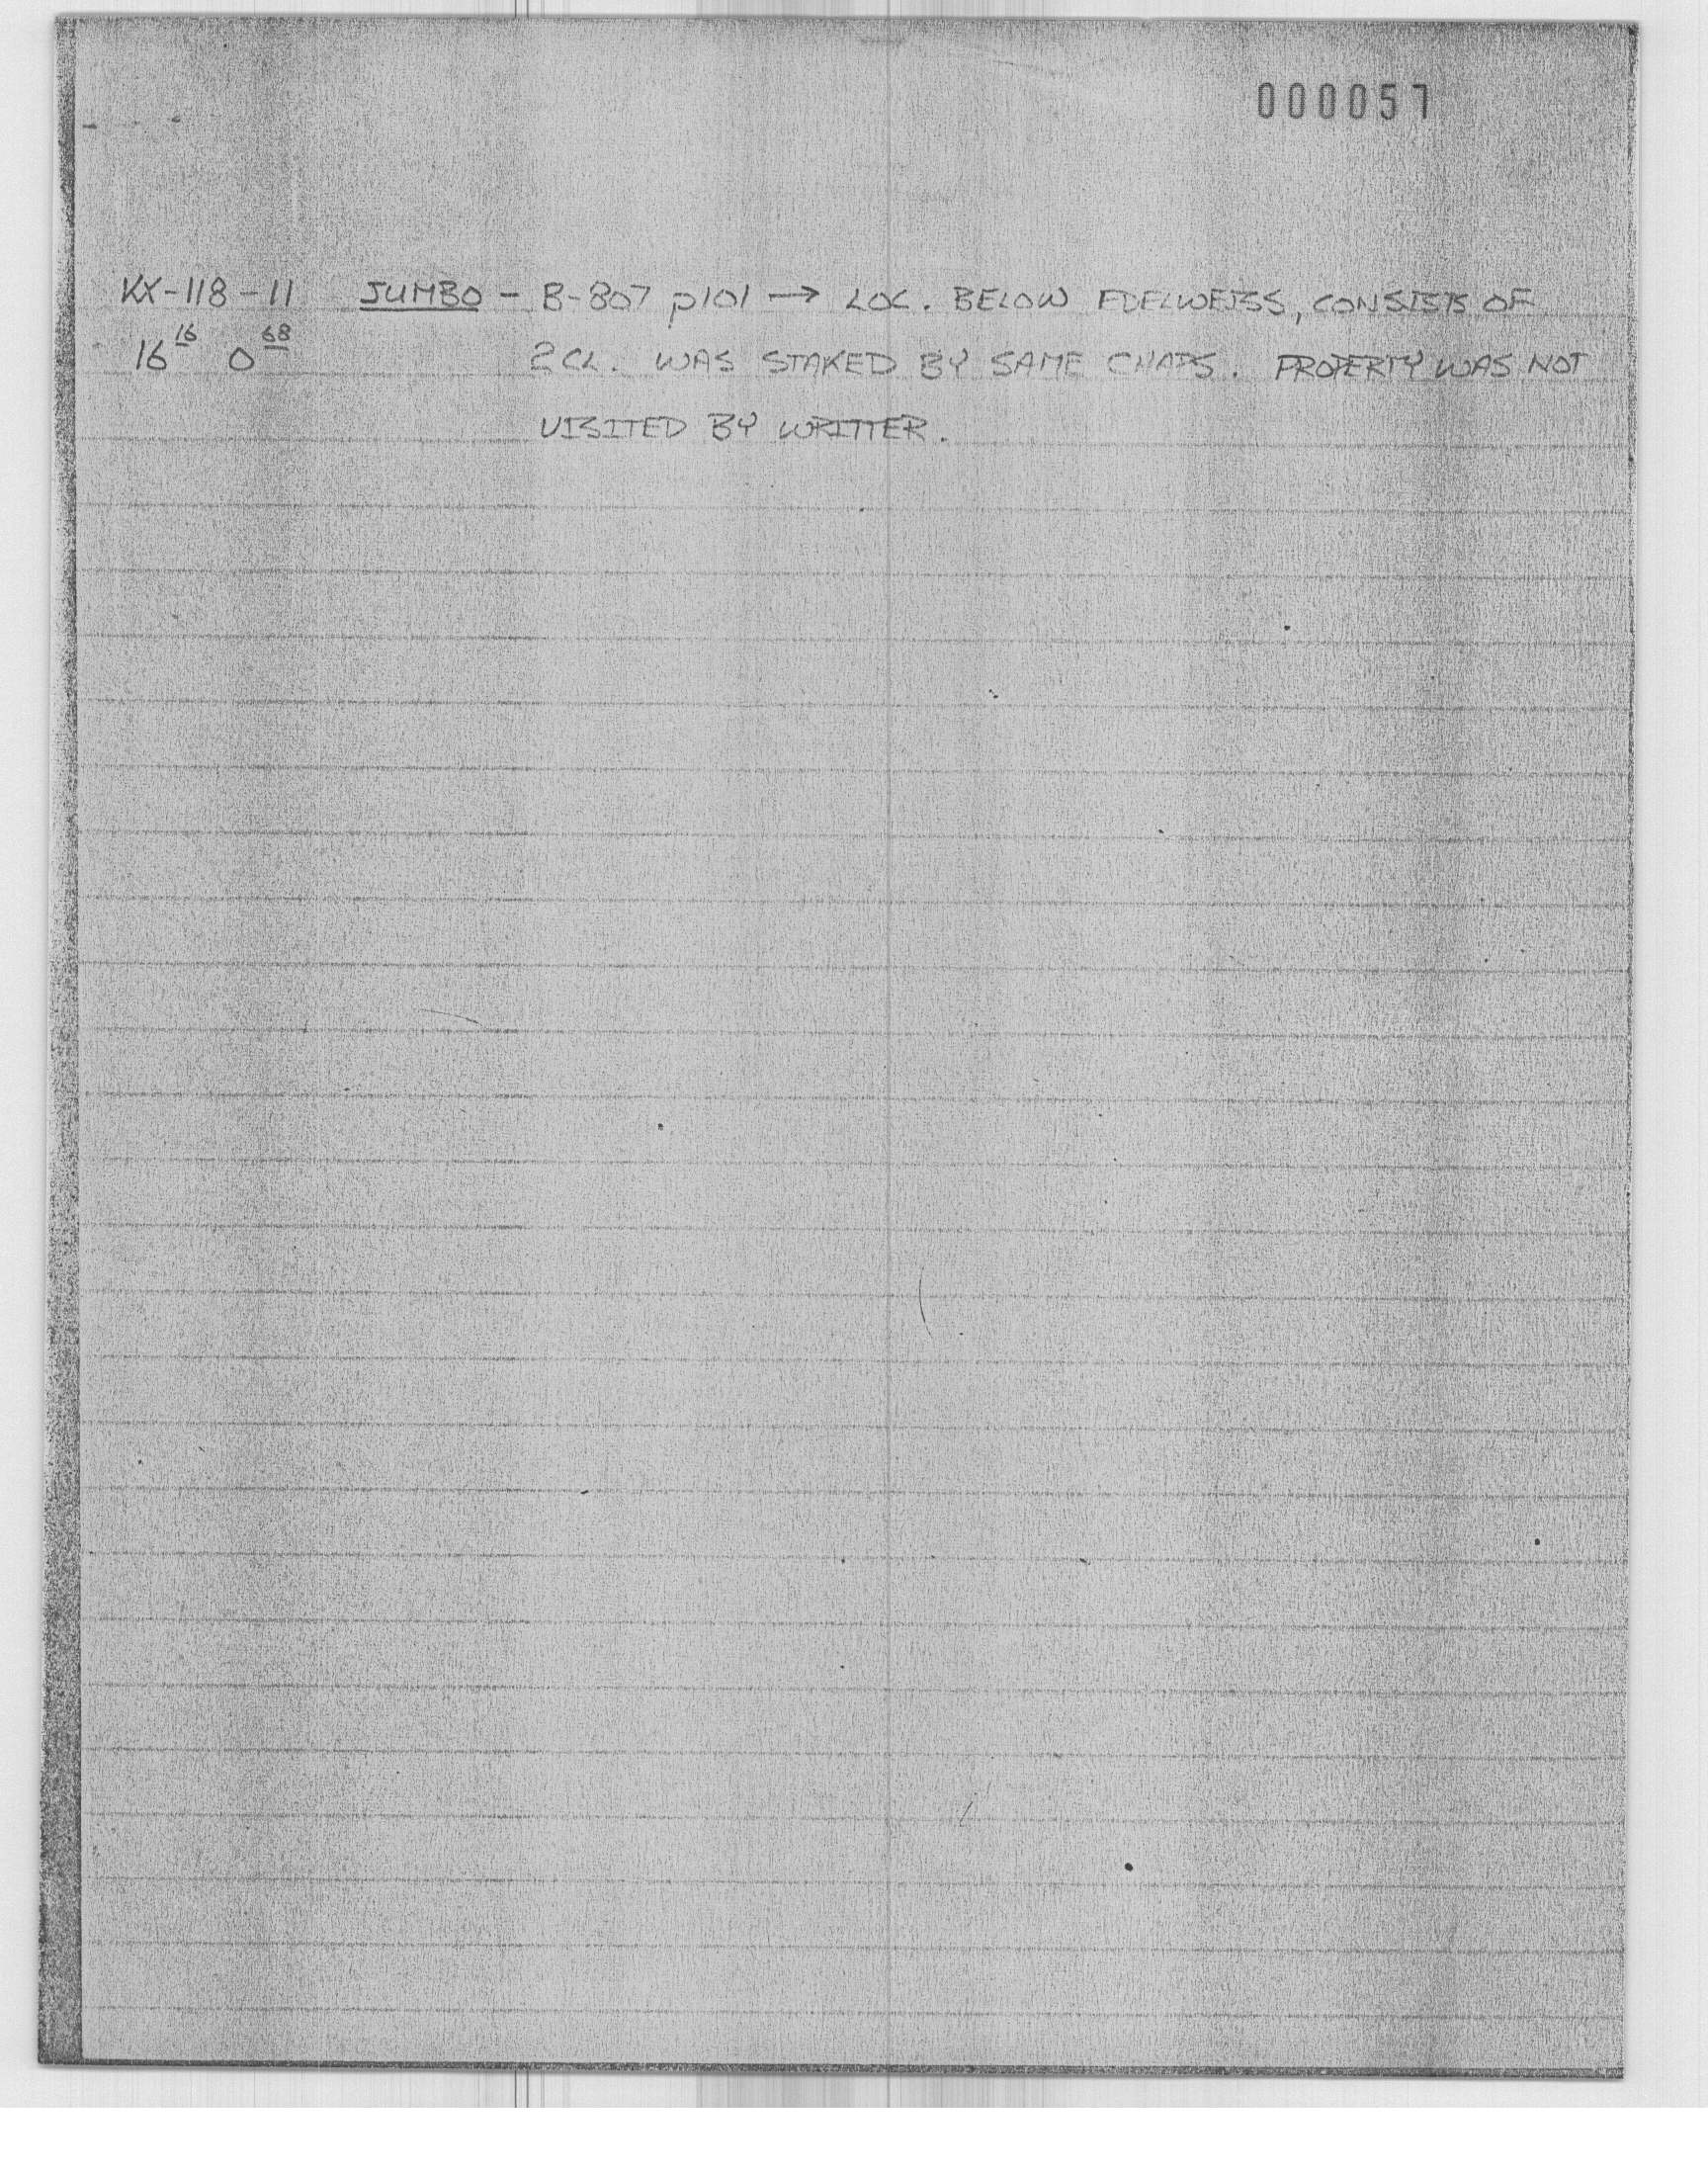 000057
KX-118-11 JUMBO - B-807 p101 → LOC. BELOW EDELWEISS, CONSISTS OF
16 16 0 68 2 CL. WAS STAKED BY SAME CHAPS. PROPERTY WAS NOT
VISITED BY WRITTER.